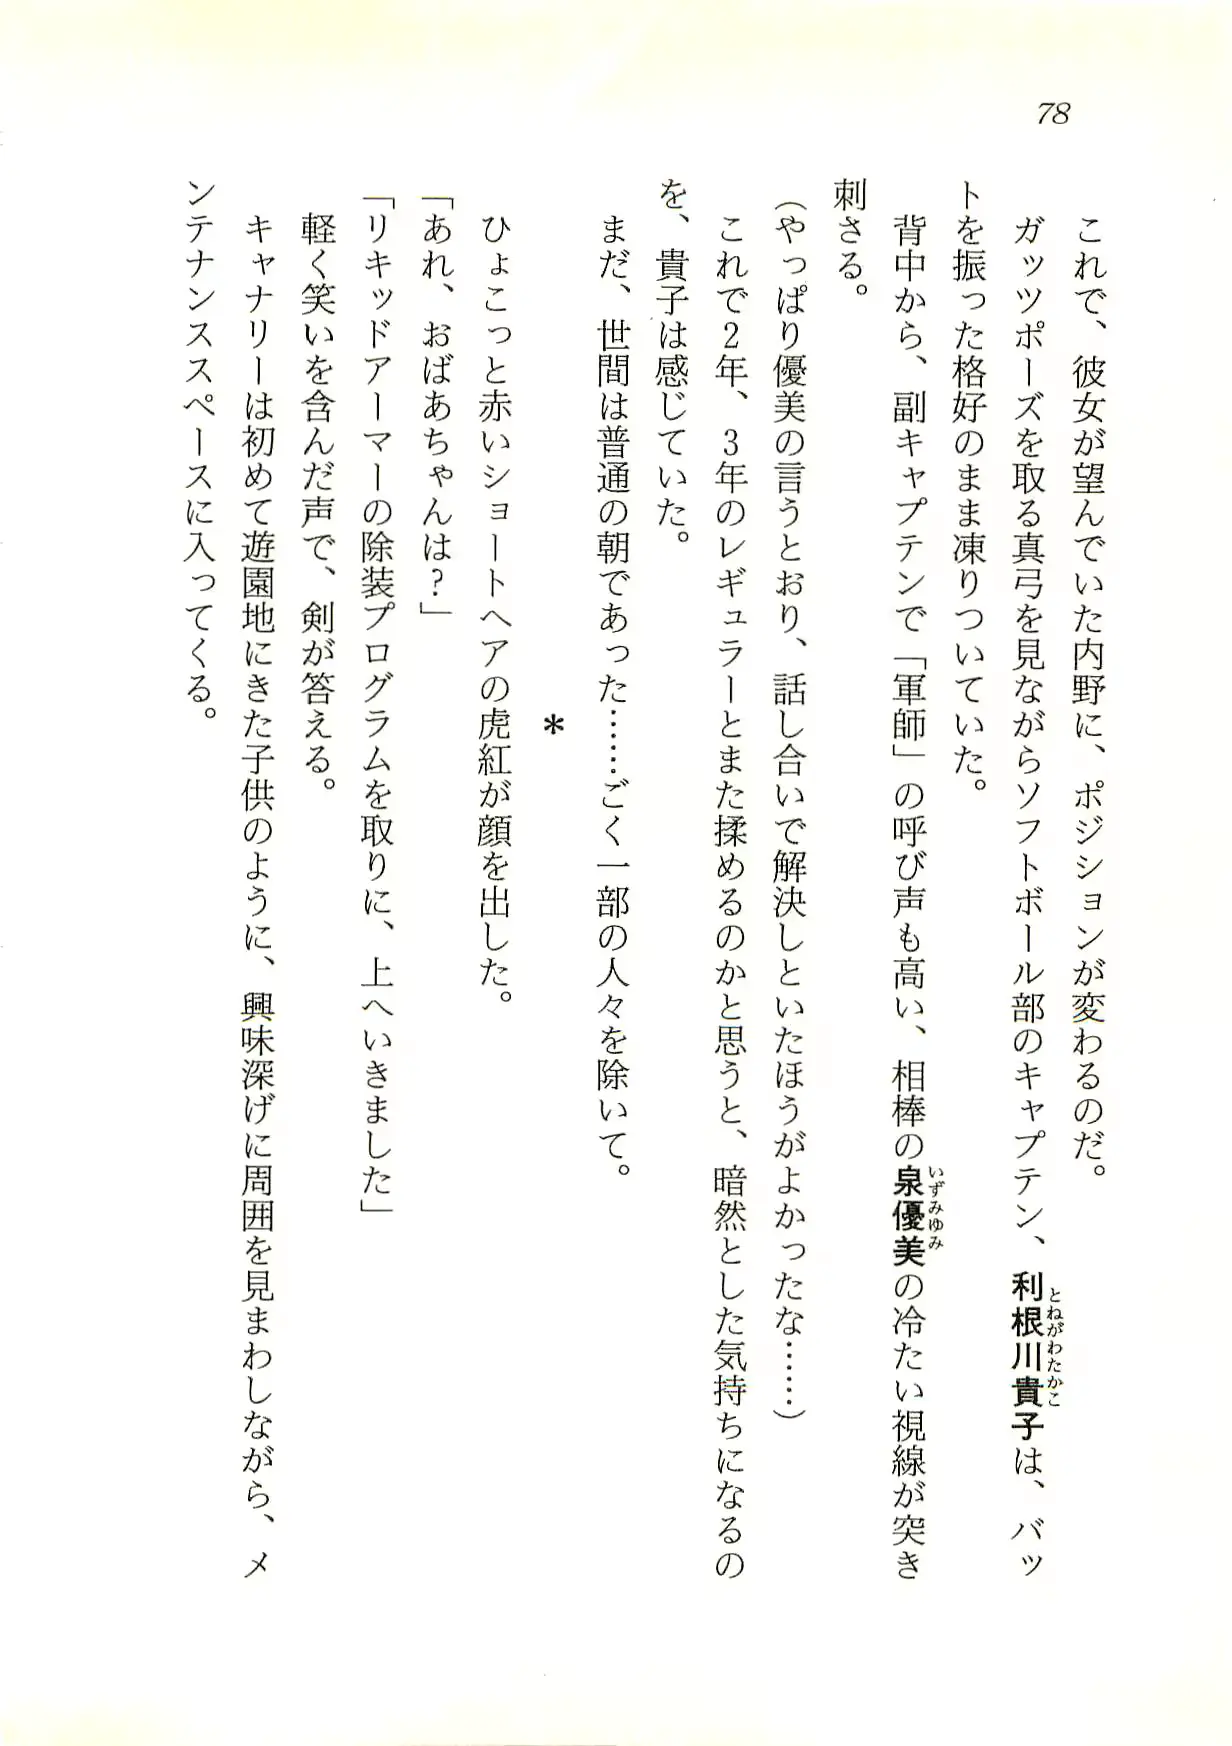 78
　これで、彼女が望んでいた内野に、ポジションが変わるのだ。
　ガッツポーズを取る真弓を見ながらソフトボール部のキャプテン、利根川貴子は、バッ
とねがわたかこ
トを振った格好のまま凍りついていた。
　背中から、副キャプテンで「軍師」の呼び声も高い、相棒の泉優美の冷たい視線が突き
いずみゆみ
刺さる。
（やっぱり優美の言うとおり、話し合いで解決しといたほうがよかったな……）
　これで2年、3年のレギュラーとまた揉めるのかと思うと、暗然とした気持ちになるの
を、貴子は感じていた。
　まだ、世間は普通の朝であった……ごく一部の人々を除いて。
＊
　ひょこっと赤いショートヘアの虎紅が顔を出した。
「あれ、おばあちゃんは？」
「リキッドアーマーの除装プログラムを取りに、上へいきました」
　軽く笑いを含んだ声で、剣が答える。
　キャナリーは初めて遊園地にきた子供のように、興味深げに周囲を見まわしながら、メ
ンテナンススペースに入ってくる。